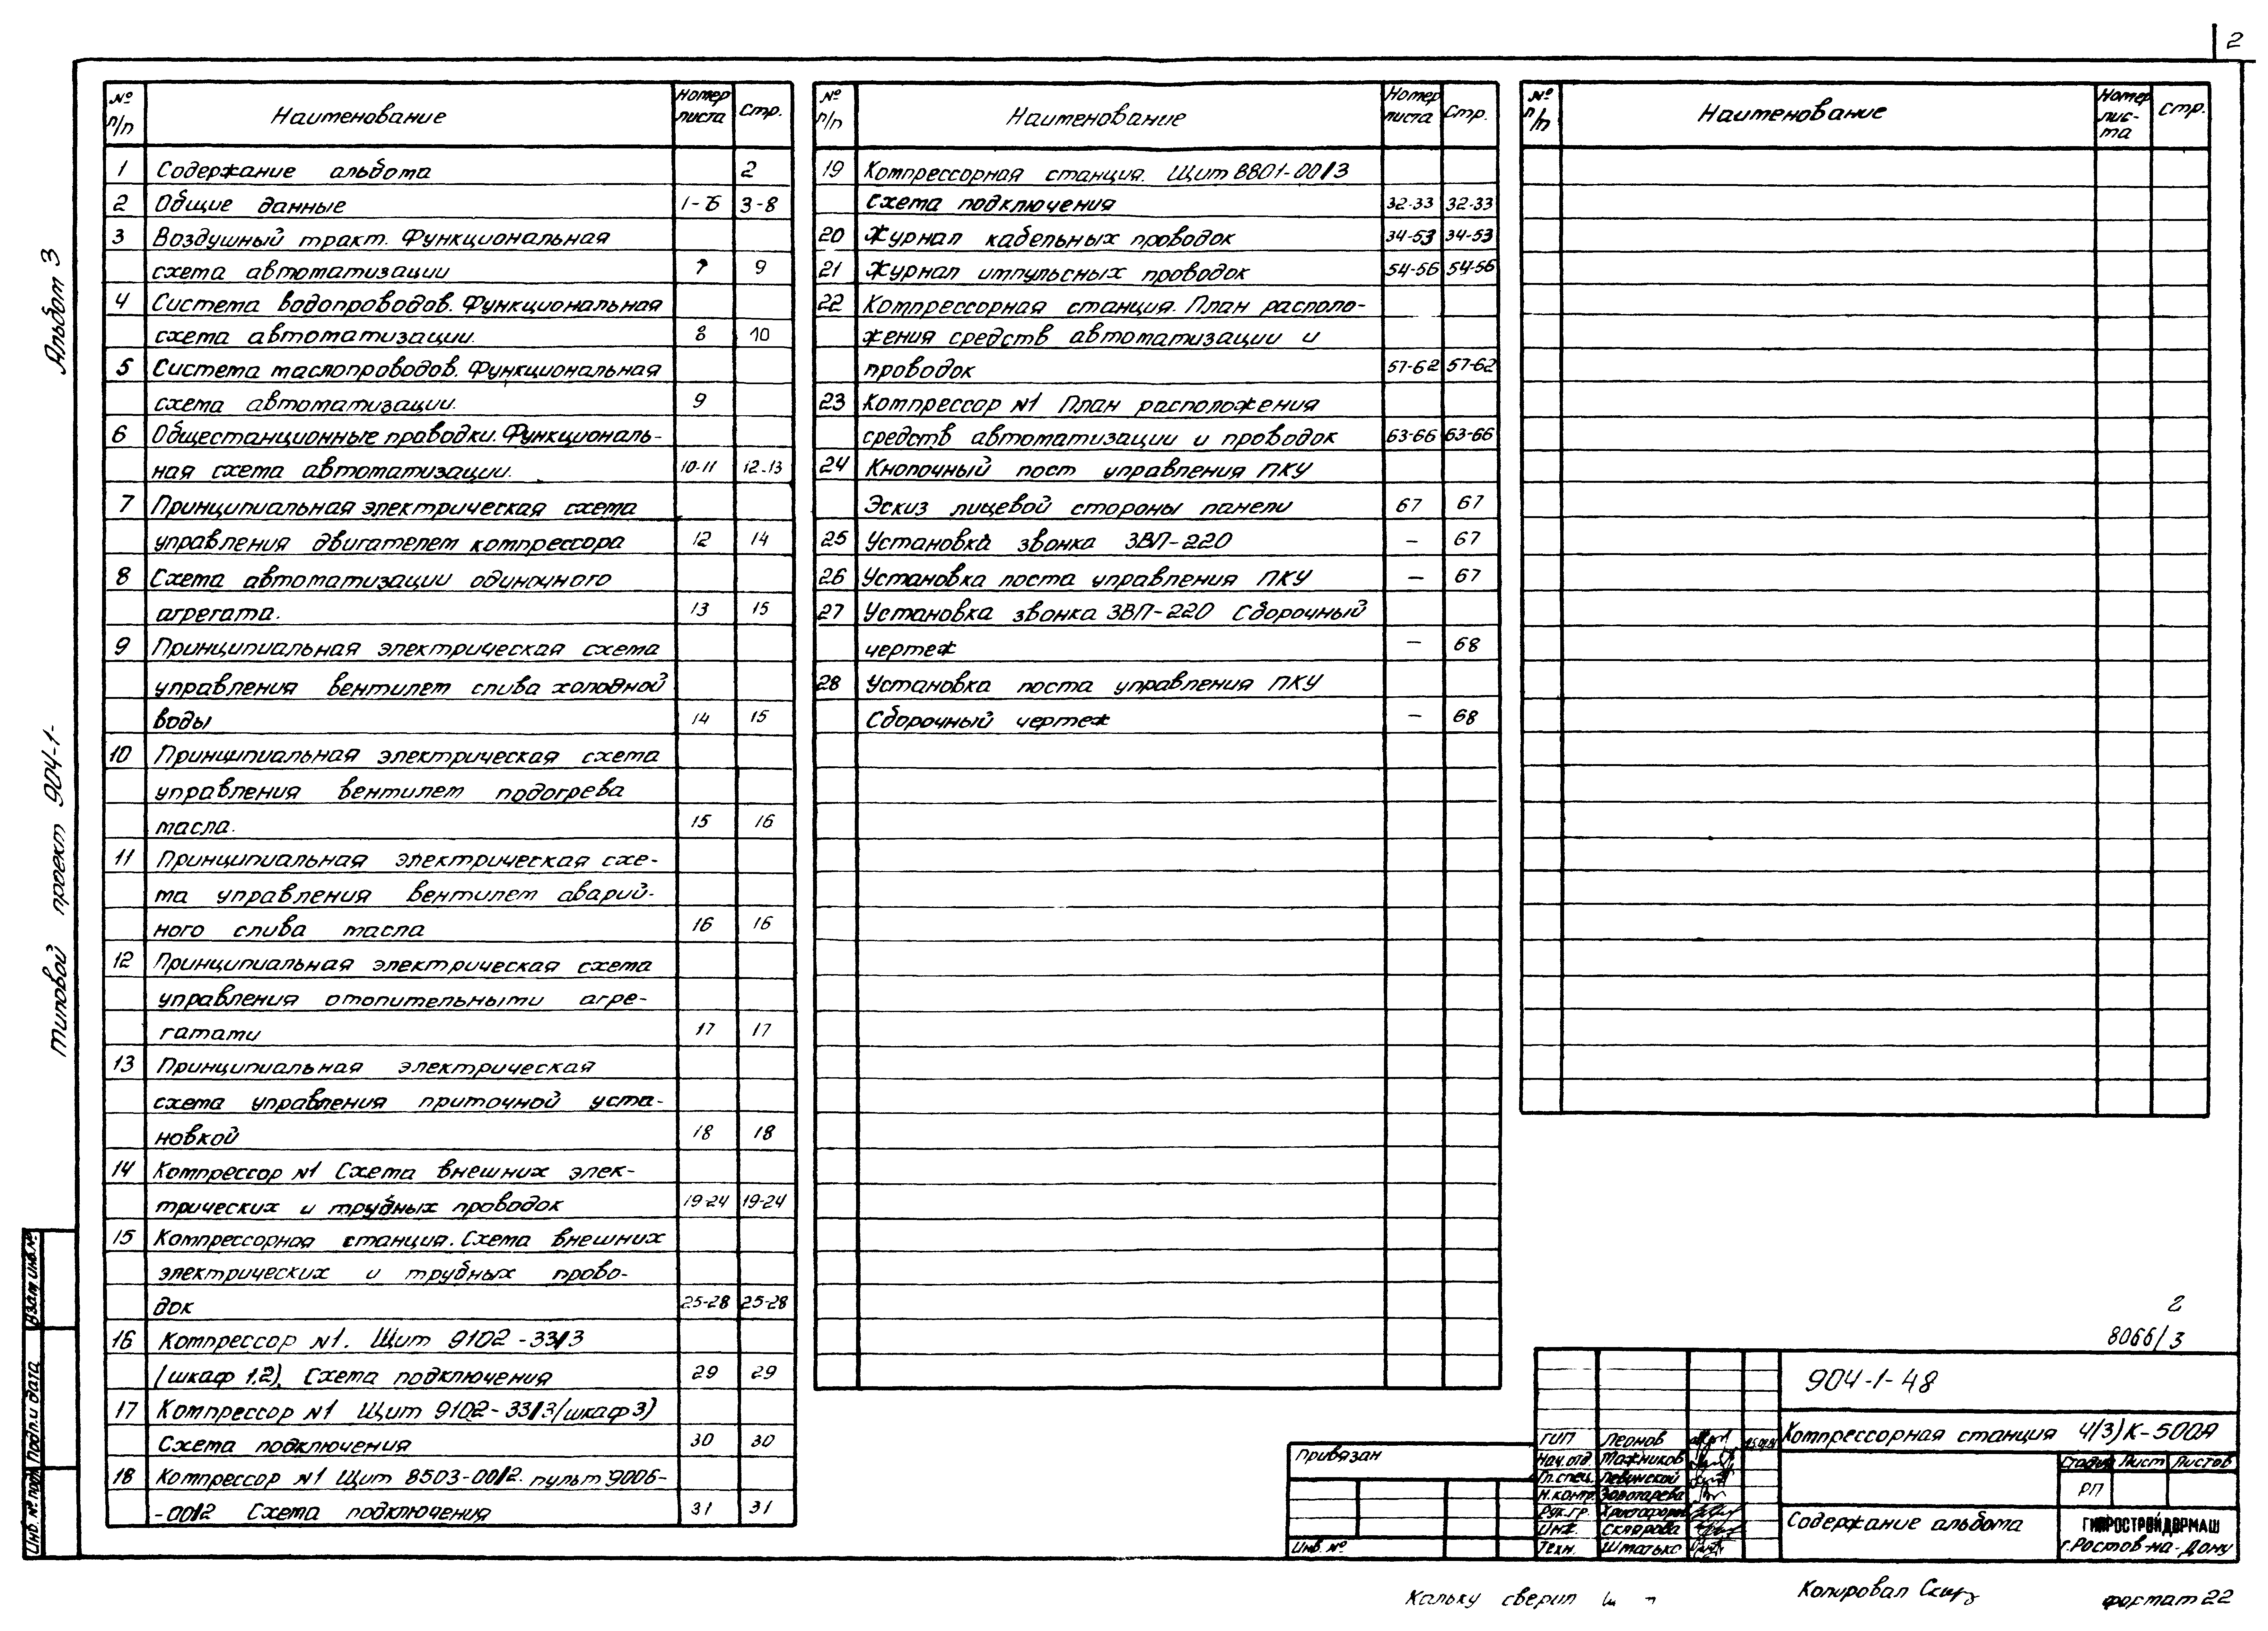 2
Альбом 3
Типовой проект 904-1-
№ п/п Наименование Номер листа Стр.
1 Содержание альбома 2
2 Общие данные 1-6 3-8
3 Воздушный тракт. Функциональная
схема автоматизации 7 9
4 Система водопроводов. Функциональная
схема автоматизации. 8 10
5 Система маслопроводов. Функциональная
схема автоматизации. 9
6 Общестанционные проводки. Функциональ-
ная схема автоматизации. 10-11 12-13
7 Принципиальная электрическая схема
управления двигателем компрессора 12 14
8 Схема автоматизации одиночного
агрегата. 13 15
9 Принципиальная электрическая схема
управления вентилем слива холодной
воды 14 15
10 Принципиальная электрическая схема
управления вентилем подогрева
масла. 15 16
11 Принципиальная электрическая схе-
ма управления вентилем аварий-
ного слива масла 16 16
12 Принципиальная электрическая схема
управления отопительными агре-
гатами 17 17
13 Принципиальная электрическая
схема управления приточной уста-
новкой 18 18
14 Компрессор №1 Схема внешних элек-
трических и трубных проводок 19-24 19-24
15 Компрессорная станция. Схема внешних
электрических и трубных прово-
док 25-28 25-28
16 Компрессор №1. Щит 9102-33/3
(шкаф 1,2). Схема подключения 29 29
17 Компрессор №1 Щит 9102-33/3 (шкаф 3)
Схема подключения 30 30
18 Компрессор №1 Щит 8503-00/2. пульт 9006-
-00/2 Схема подключения 31 31
№ п/п Наименование Номер листа Стр.
19 Компрессорная станция. Щит 8801-00/3
Схема подключения 32-33 32-33
20 Журнал кабельных проводок 34-53 34-53
21 Журнал импульсных проводок 54-56 54-56
22 Компрессорная станция. План располо-
жения средств автоматизации и
проводок 57-62 57-62
23 Компрессор №1 План расположения
средств автоматизации и проводок 63-66 63-66
24 Кнопочный пост управления ПКУ
Эскиз лицевой стороны панели 67 67
25 Установка звонка ЗВП-220 – 67
26 Установка поста управления ПКУ – 67
27 Установка звонка ЗВП-220 Сборочный
чертеж – 68
28 Установка поста управления ПКУ
Сборочный чертеж – 68
№ п/п Наименование Номер лис-та Стр.
2
8066/3
904-1-48
Компрессорная станция 4(3)К-500А
Стадия Лист Листов
РП
Содержание альбома
ГИПРОСТРОЙДОРМАШ
г. Ростов-на-Дону
ГИП Леонов
Нач.отд. Мажников
Гл.спец. Левинской
Н.контр. Золотарева
Рук.гр. Христофоров
Инж. Склярова
Техн. Шматько
Привязан
Инв. №
Взам. инв.№
Подп. и дата
Инв. № подл.
Кальку сверил
Копировал
формат 22